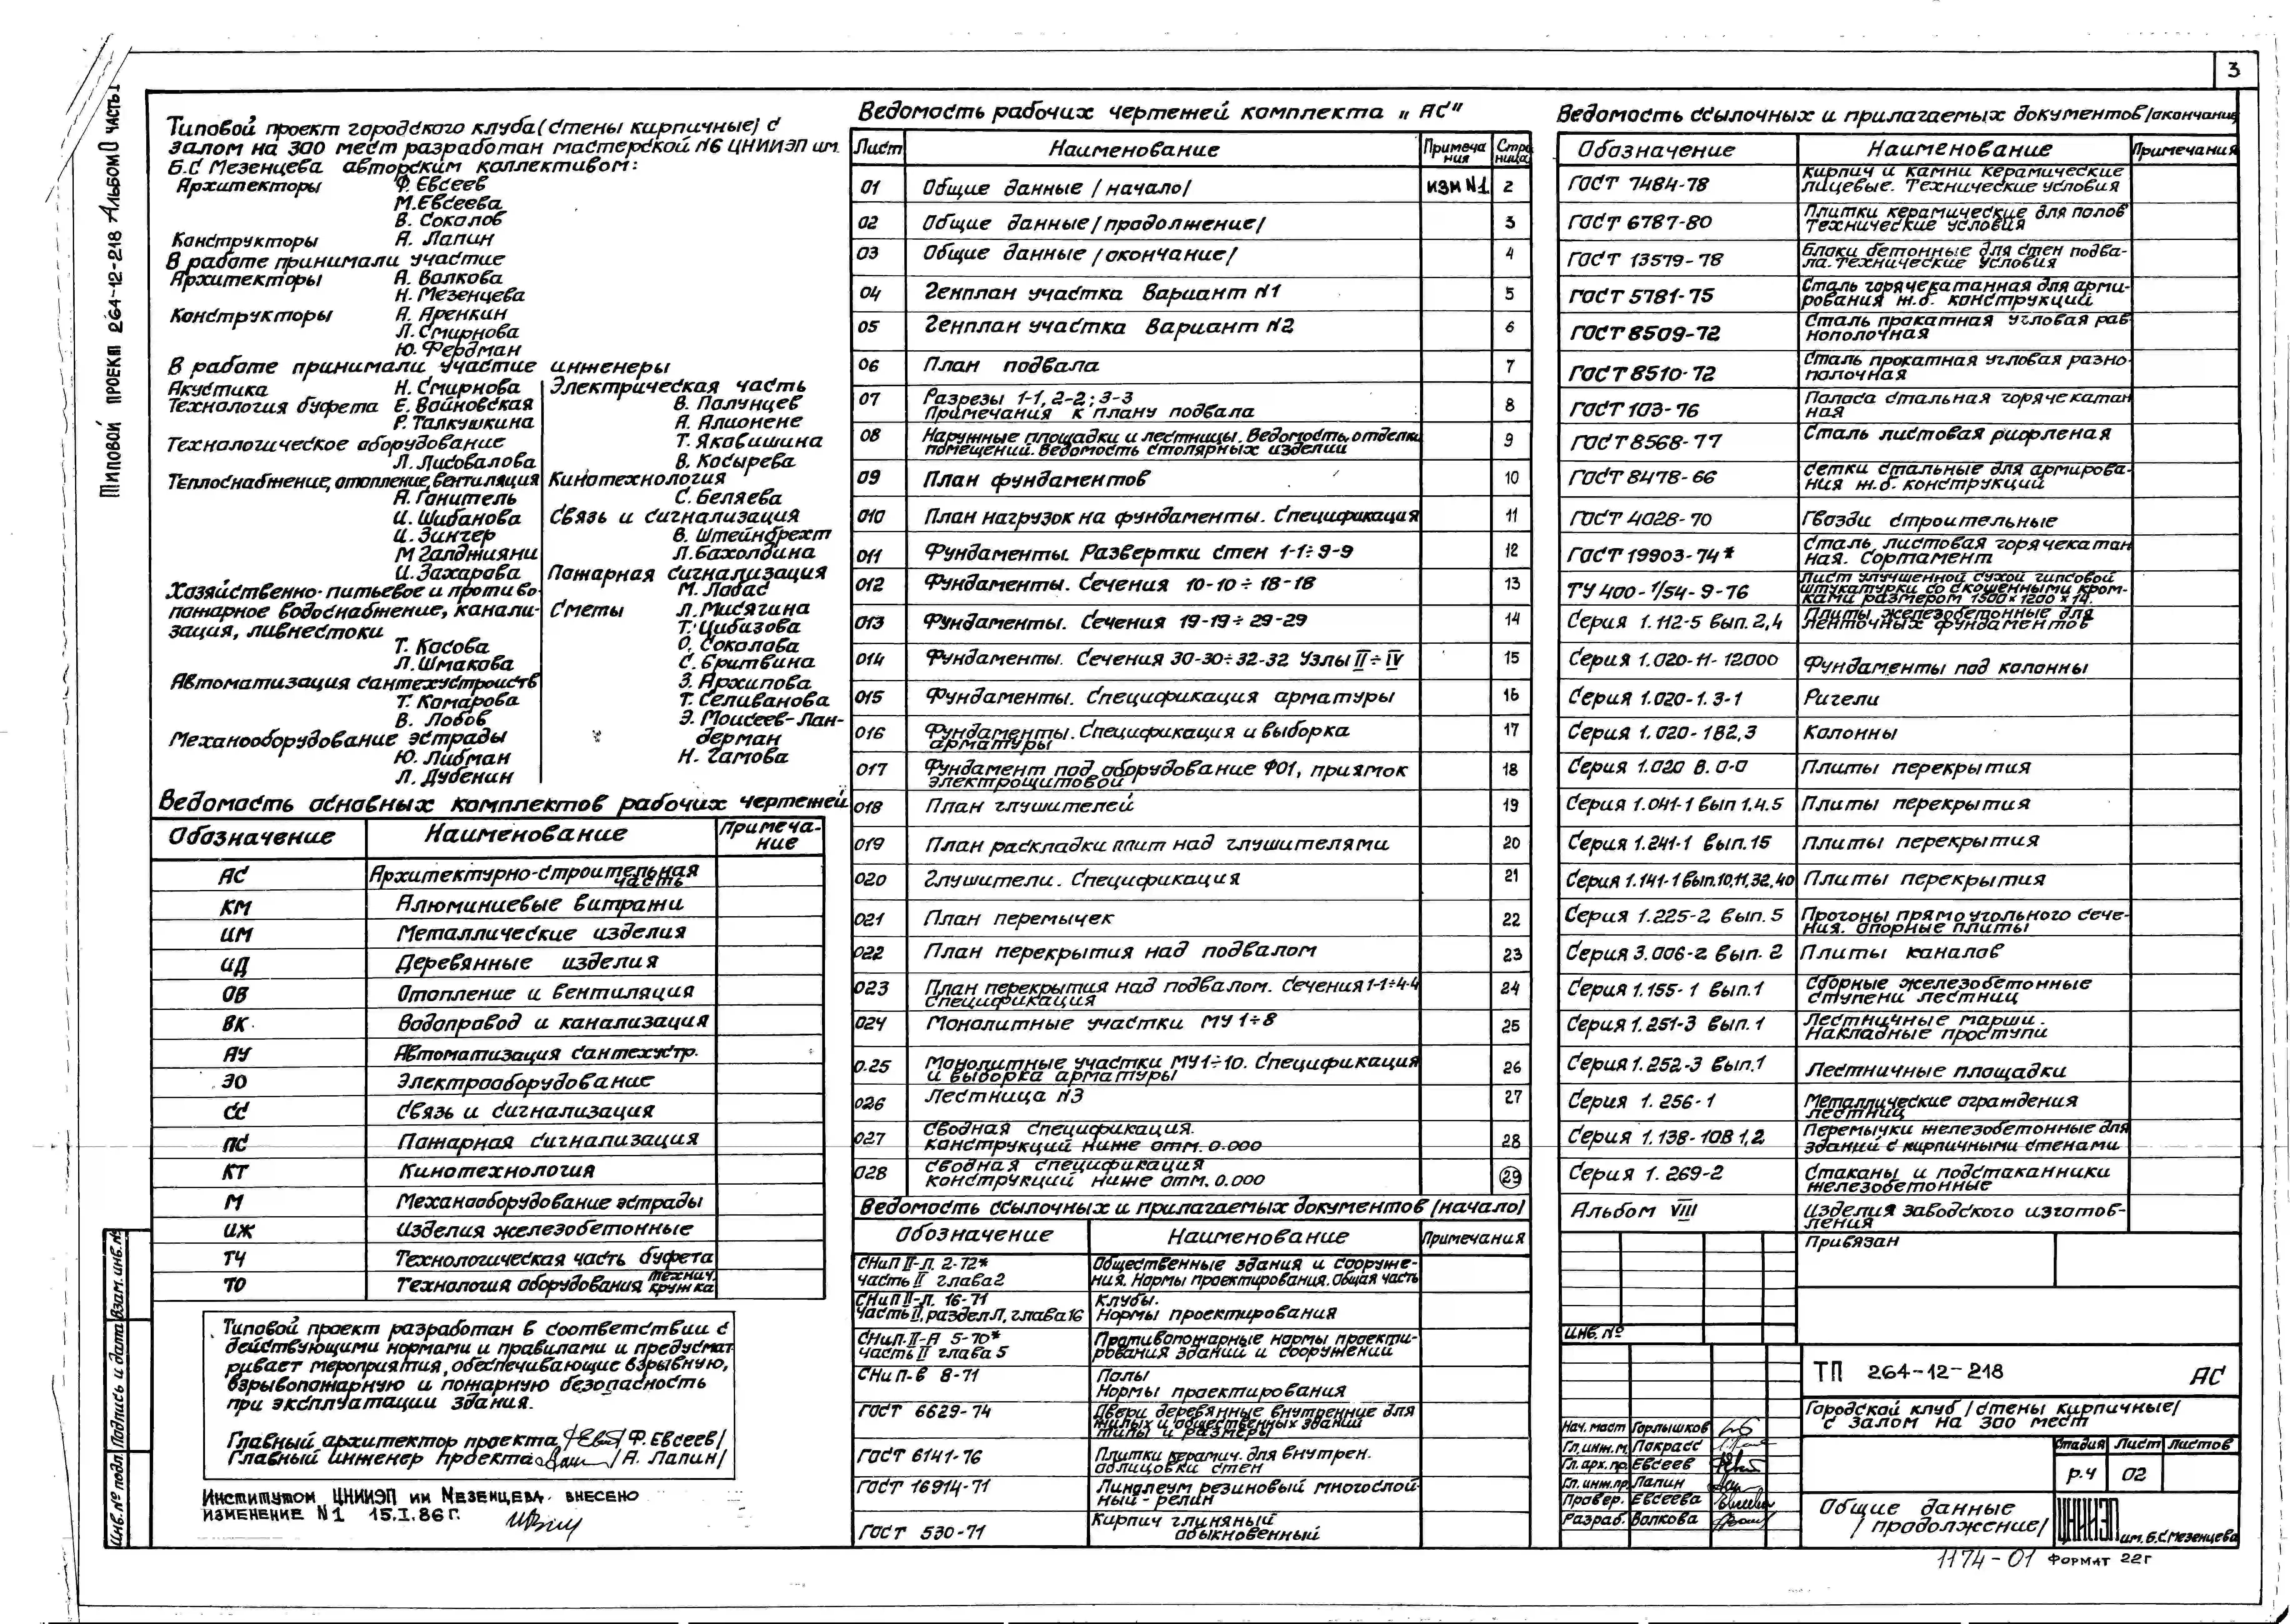 3
Типовой проект 264-12-218 Альбом 0 часть 1
Типовой проект городского клуба (стены кирпичные) с
залом на 300 мест разработан мастерской №6 ЦНИИЭП им.
Б.С Мезенцева авторским коллективом:
Архитекторы Ф. Евсеев
М. Евсеева
В. Соколов
Конструкторы А. Лапин
В работе принимали участие
Архитекторы А. Волкова
Н. Мезенцева
Конструкторы А. Аренкин
Л. Смирнова
Ю. Фердман
В работе принимали участие инженеры
Акустика Н. Смирнова
Технология буфета Е. Войновская
Р. Талкушкина
Технологическое оборудование
Л. Лисовалова
Теплоснабжение, отопление, вентиляция
А. Ганитель
И. Шибанова
И. Зингер
М Галджияни
И. Захарова
Хозяйственно-питьевое и противо-
пожарное водоснабжение, канали-
зация, ливнестоки
Т. Косова
Л. Шмакова
Автоматизация сантехустройств
Т. Комарова
В. Лобов
Механооборудование эстрады
Ю. Либман
Л. Дубенин
Электрическая часть
В. Полунцев
А. Алионене
Т. Якобишина
В. Косырева
Кинотехнология
С. Беляева
Связь и сигнализация
В. Штейнбрехт
Л. Бахолдина
Пожарная сигнализация
М. Лобас
Сметы Л. Мисягина
Т. Цибизова
О. Соколова
С. Бритвина
З. Архипова
Т. Селиванова
Э. Моисеев-Лан-
дерман
Н. Гамова
Ведомость основных комплектов рабочих чертежей
Обозначение Наименование Примеча-
ние
АС Архитектурно-строительная
часть
КМ Алюминиевые витражи
ИМ Металлические изделия
ИД Деревянные изделия
ОВ Отопление и вентиляция
ВК Водопровод и канализация
АУ Автоматизация сантехустр.
ЭО Электрооборудование
СС Связь и сигнализация
ПС Пожарная сигнализация
КТ Кинотехнология
М Механооборудование эстрады
ИЖ Изделия железобетонные
ТЧ Технологическая часть буфета
ТО Технология оборудования технич.
кружка
Типовой проект разработан в соответствии с
действующими нормами и правилами и предусмат
ривает мероприятия, обеспечивающие взрывную,
взрывопожарную и пожарную безопасность
при эксплуатации здания.
Главный архитектор проекта /Ф. Евсеев/
Главный инженер проекта /А. Лапин/
Институтом ЦНИИЭП им Мезенцева внесено
изменение N1 15.I.86г.
Инв.№ подл. Подпись и дата Взам. инв.№
Ведомость рабочих чертежей комплекта „АС"
Лист Наименование Примеча
ния Стра
ница
01 Общие данные /начало/ изм N1 2
02 Общие данные /продолжение/ 3
03 Общие данные /окончание/ 4
04 Генплан участка Вариант N1 5
05 Генплан участка Вариант N2 6
06 План подвала 7
07 Разрезы 1-1, 2-2; 3-3
Примечания к плану подвала 8
08 Наружные площадки и лестницы. Ведомость отделки
помещений. Ведомость столярных изделий 9
09 План фундаментов 10
010 План нагрузок на фундаменты. Спецификация 11
011 Фундаменты. Развертки стен 1-1÷9-9 12
012 Фундаменты. Сечения 10-10÷18-18 13
013 Фундаменты. Сечения 19-19÷29-29 14
014 Фундаменты. Сечения 30-30÷32-32 Узлы II÷IV 15
015 Фундаменты. Спецификация арматуры 16
016 Фундаменты. Спецификация и выборка
арматуры 17
017 Фундамент под оборудование Ф01, приямок
электрощитовой 18
018 План глушителей 19
019 План раскладки плит над глушителями 20
020 Глушители. Спецификация 21
021 План перемычек 22
022 План перекрытия над подвалом 23
023 План перекрытия над подвалом. Сечения 1-1÷4-4
Спецификация 24
024 Монолитные участки МУ 1÷8 25
0.25 Монолитные участки МУ1÷10. Спецификация
и выборка арматуры 26
026 Лестница N3 27
027 Сводная спецификация.
конструкций ниже отм. 0.000 28
028 Сводная спецификация
конструкций ниже отм. 0.000 29
Ведомость ссылочных и прилагаемых документов /начало/
Обозначение Наименование Примечания
СНиП II-Л. 2-72*
часть II глава 2 Общественные здания и сооруже-
ния. Нормы проектирования. Общая часть
СНиП II-Л. 16-71
Часть II, раздел Л, глава 16 Клубы.
Нормы проектирования
СНип. II-А 5-70*
часть II глава 5 Противопожарные нормы проекти-
рования зданий и сооружений
СНи П-в 8-71 Полы
Нормы проектирования
ГОСТ 6629-74 Двери деревянные внутренние для
жилых и общественных зданий
типы и размеры
ГОСТ 6141-76 Плитки керамич. для внутрен.
облицовки стен
ГОСТ 16914-71 Линолеум резиновый многослой-
ный-релин
ГОСТ 530-71 Кирпич глиняный
обыкновенный
Ведомость ссылочных и прилагаемых документов /окончание/
Обозначение Наименование Примечания
ГОСТ 7484-78 Кирпич и камни керамические
лицевые. Технические условия
ГОСТ 6787-80 Плитки керамические для полов
Технические условия
ГОСТ 13579-78 Блоки бетонные для стен подва-
ла. Технические условия
ГОСТ 5781-75 Сталь горячекатанная для арми-
рования ж.б. конструкций
ГОСТ 8509-72 Сталь прокатная угловая рав
нополочная
ГОСТ 8510-72 Сталь прокатная угловая разно-
полочная
ГОСТ 103-76 Полоса стальная горячекатан
ная
ГОСТ 8568-77 Сталь листовая рифленая
ГОСТ 8478-66 Сетки стальные для армирова-
ния ж.б. конструкций
ГОСТ 4028-70 Гвозди строительные
ГОСТ 19903-74* Сталь листовая горячекатан
ная. Сортамент
ТУ 400-1/54-9-76 Лист улучшенной сухой гипсовой
штукатурки со скошенными кром-
ками размером 1500×1200×14.
Серия 1.112-5 вып. 2,4 Плиты железобетонные для
ленточных фундаментов
Серия 1.020-11-12000 Фундаменты под колонны
Серия 1.020-1.3-1 Ригели
Серия 1.020-182,3 Колонны
Серия 1.020 В. 0-0 Плиты перекрытия
Серия 1.041-1 вып 1.4.5 Плиты перекрытия
Серия 1.241-1 вып. 15 Плиты перекрытия
Серия 1.141-1 вып.10,11,32,40 Плиты перекрытия
Серия 1.225-2 вып. 5 Прогоны прямоугольного сече-
ния. опорные плиты
Серия 3.006-2 вып. 2 Плиты каналов
Серия 1.155-1 вып.1 Сборные железобетонные
ступени лестниц
Серия 1.251-3 вып. 1 Лестничные марши.
Накладные проступи
Серия 1.252-3 вып.1 Лестничные площадки
Серия 1.256-1 Металлические ограждения
лестниц
Серия 1.138-10В 1,2 Перемычки железобетонные для
зданий с кирпичными стенами
Серия 1.269-2 Стаканы и подстаканники
железобетонные
Альбом VIII Изделия заводского изготов-
ления
Привязан
Инв. №
ТП 264-12-218 АС
Городской клуб /стены кирпичные/
с залом на 300 мест
Нач. маст Горлышков
Гл.инж.м. Покрасс
Гл.арх.пр. Евсеев
Гл. инж.пр. Лапин
Провер. Евсеева
Разраб. Волкова
Стадия Лист Листов
Р.Ч 02
Общие данные
/продолжение/
ЦНИИЭП им. Б.С. Мезенцева
1174-01 Формат 22г